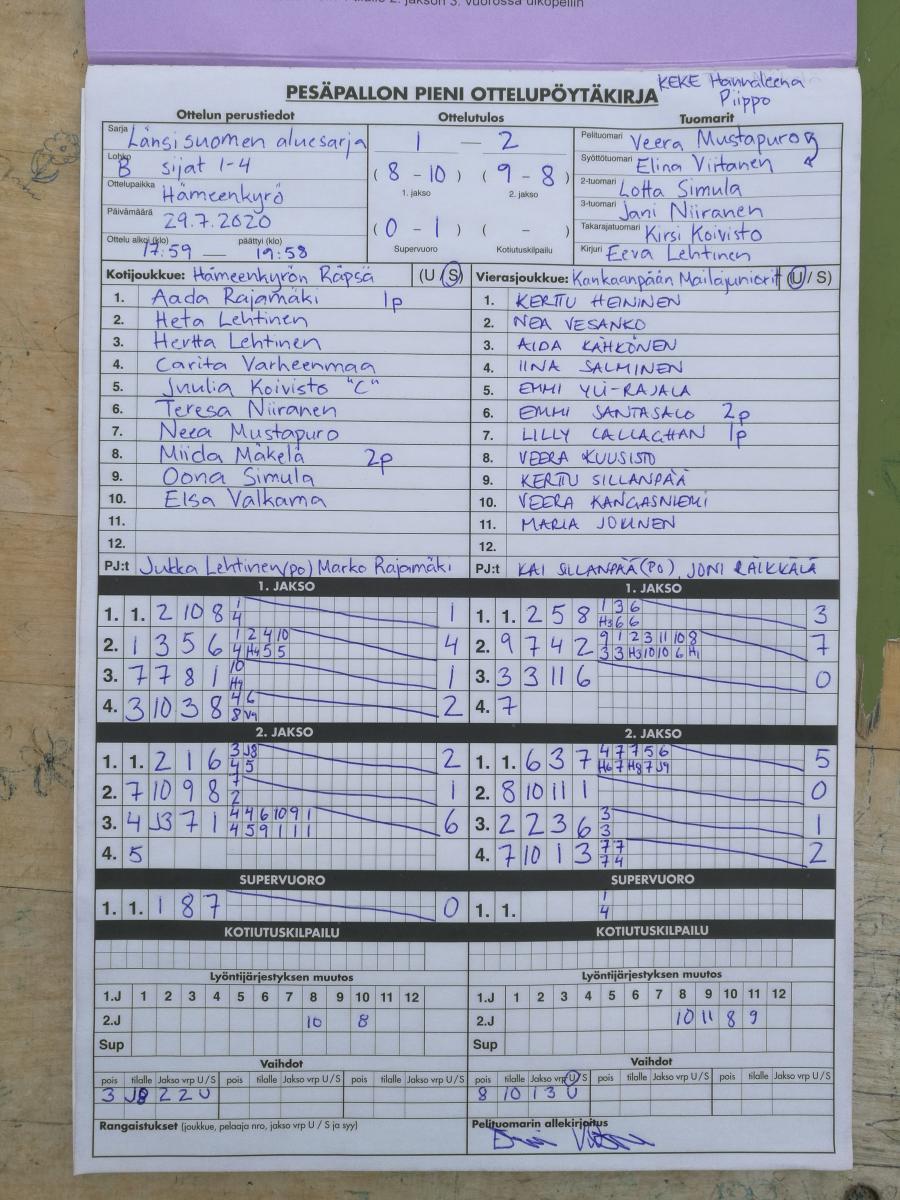 2. jakson 3. vuorossa ulkopeliin
KEKE Hannaleena
Piippo
PESÄPALLON PIENI OTTELUPÖYTÄKIRJA
Ottelun perustiedot Ottelutulos Tuomarit
Sarja Länsisuomen aluesarja 1 — 2 Pelituomari Veera Mustapuro
Lohko B sijat 1-4 (8 - 10) (9 - 8) Syöttötuomari Elina Virtanen
1. jakso 2. jakso
Ottelupaikka Hämeenkyrö 2-tuomari Lotta Simula
Päivämäärä 29.7.2020 (0 - 1) ( - ) 3-tuomari Jani Niiranen
Supervuoro Kotiutuskilpailu Takarajatuomari Kirsi Koivisto
Ottelu alkoi (klo) 17:59 — päättyi (klo) 19:58 Kirjuri Eeva Lehtinen
Kotijoukkue: Hämeenkyrön Räpsä (U / S) Vierasjoukkue: Kankaanpään Mailajuniorit (U / S)
1. Aada Rajamäki 1p 1. KERTTU HEININEN
2. Heta Lehtinen 2. NEA VESANKO
3. Hertta Lehtinen 3. AIDA KÄHKÖNEN
4. Carita Varheenmaa 4. IINA SALMINEN
5. Juulia Koivisto "C" 5. EMMI YLI-RAJALA
6. Teresa Niiranen 6. EMMI SANTASALO 2p
7. Neea Mustapuro 7. LILLY CALLAGHAN 1p
8. Miida Mäkelä 2p 8. VEERA KUUSISTO
9. Oona Simula 9. KERTTU SILLANPÄÄ
10. Elsa Valkama 10. VEERA KANGASNIEMI
11. 11. MARIA JOKINEN
12. 12.
PJ:t Jukka Lehtinen (po) Marko Rajamäki PJ:t KAI SILLANPÄÄ (PO), JONI RÄIKKÄLÄ
1. JAKSO 1. JAKSO
1. 1. 2 10 8 1 1 1. 1. 2 5 8 1 3 6 3
4 H3 6 6
2. 1 3 5 6 1 2 4 10 4 2. 9 7 4 2 9 1 2 3 11 10 8 7
4 H4 5 5 3 3 H3 10 10 6 H1
3. 7 7 8 1 10 1 3. 3 3 11 6 0
H9
4. 3 10 3 8 4 6 2 4. 7
8 V9
2. JAKSO 2. JAKSO
1. 1. 2 1 6 3 J8 2 1. 1. 6 3 7 4 7 7 5 6 5
4 5 H6 7 H8 7 J9
2. 7 10 9 8 7 1 2. 8 10 11 1 0
2
3. 4 J3 7 1 4 4 6 10 9 1 6 3. 2 2 3 6 3 1
4 5 9 1 1 1 3
4. 5 4. 7 10 1 3 7 7 2
7 4
SUPERVUORO SUPERVUORO
1. 1. 1 8 7 0 1. 1. 1
4
KOTIUTUSKILPAILU KOTIUTUSKILPAILU
Lyöntijärjestyksen muutos Lyöntijärjestyksen muutos
1.J 1 2 3 4 5 6 7 8 9 10 11 12 1.J 1 2 3 4 5 6 7 8 9 10 11 12
2.J 10 8 2.J 10 11 8 9
Sup Sup
Vaihdot Vaihdot
pois tilalle Jakso vrp U / S pois tilalle Jakso vrp U / S pois tilalle Jakso vrp U / S pois tilalle Jakso vrp U / S pois tilalle Jakso vrp U / S pois tilalle Jakso vrp U / S
3 J8 2 2 U 8 10 1 3 U
Rangaistukset (joukkue, pelaaja nro, jakso vrp U / S ja syy) Pelituomarin allekirjoitus